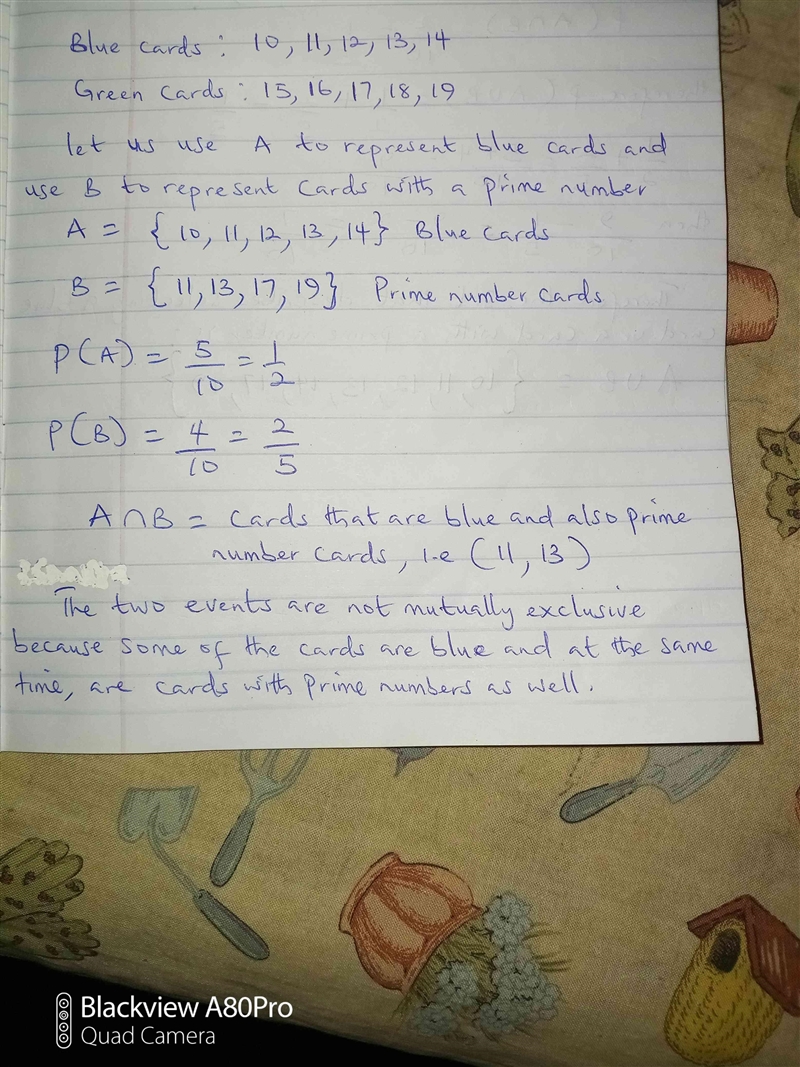 Blue cards : 10, 11, 12, 13, 14
Green Cards : 15, 16, 17, 18, 19
let us use A to represent blue cards and
use B to represent Cards with a prime number
A = {10, 11, 12, 13, 14} Blue Cards
B = {11, 13, 17, 19} Prime number cards
P(A) = 5/10 = 1/2
P(B) = 4/10 = 2/5
A ∩ B = Cards that are blue and also prime
number cards, i.e (11, 13)
The two events are not mutually exclusive
because some of the cards are blue and at the same
time, are cards with Prime numbers as well.
Blackview A80Pro
Quad Camera